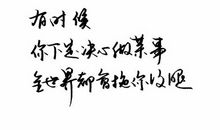 有时候
你下定决心做某事
全世界都会拖你后腿